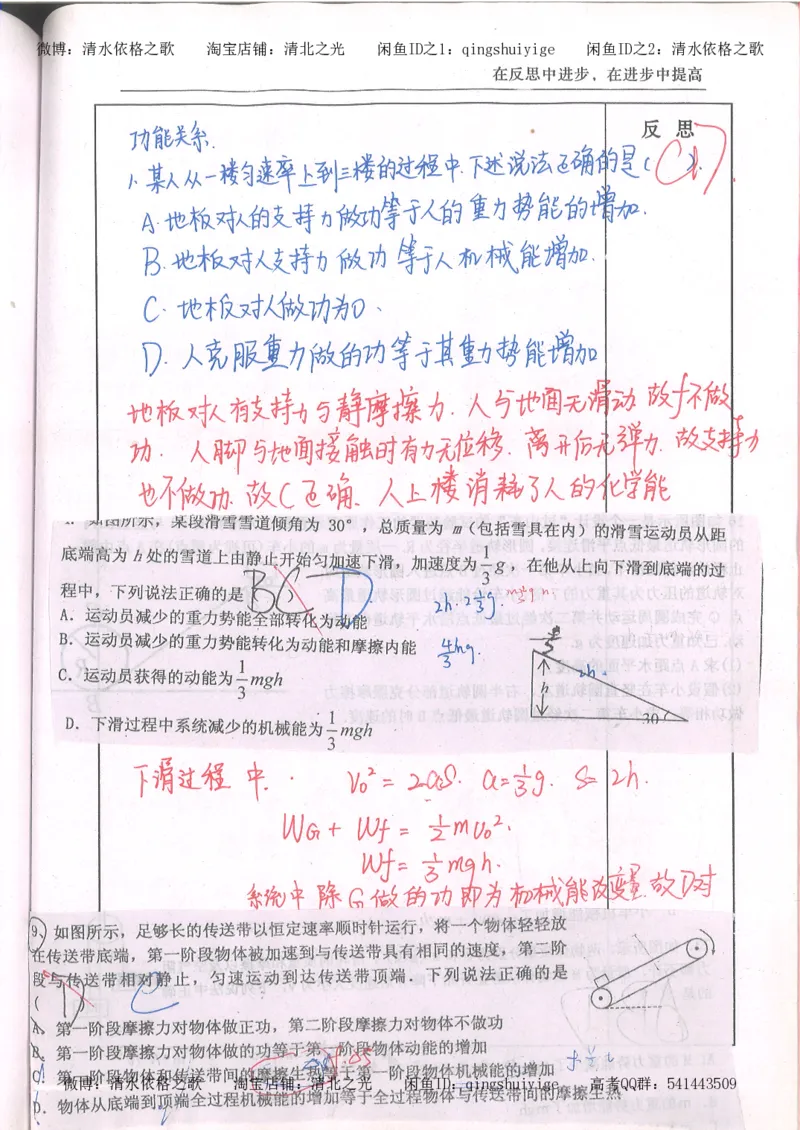 微博：清水依格之歌 淘宝店铺：清北之光 闲鱼ID之1：qingshuiyige 闲鱼ID之2：清水依格之歌
在反思中进步，在进步中提高
反 思
功能关系.
1. 某人从一楼匀速率上到三楼的过程中.下述说法正确的是( CD ).
A. 地板对人的支持力做功等于人的重力势能的增加.
B. 地板对人支持力做功等于人机械能增加.
C. 地板对人做功为0.
D. 人克服重力做的功等于其重力势能增加
地板对人有支持力与静摩擦力.人与地面无滑动故f不做
功. 人脚与地面接触时有力无位移. 离开后无弹力. 故支持力
也不做功.故C正确. 人上楼消耗了人的化学能
如图所示，某段滑雪雪道倾角为 30°，总质量为 m（包括雪具在内）的滑雪运动员从距
底端高为 h 处的雪道上由静止开始匀加速下滑，加速度为 1/3 g，在他从上向下滑到底端的过
程中，下列说法正确的是（ BC D ）
2h·2 1/3 g.
A．运动员减少的重力势能全部转化为动能
B．运动员减少的重力势能转化为动能和摩擦内能
4/3 hg.
2h
h
30
C．运动员获得的动能为 1/3 mgh
D．下滑过程中系统减少的机械能为 1/3 mgh
下滑过程中. v₀² = 2aS. a = 1/3 g. S = 2h.
WG + Wf = 1/2 mv₀².
Wf = 1/3 mgh.
系统中除G做的功即为机械能改变量.故D对
9．如图所示，足够长的传送带以恒定速率顺时针运行，将一个物体轻轻放
在传送带底端，第一阶段物体被加速到与传送带具有相同的速度，第二阶
段与传送带相对静止，匀速运动到达传送带顶端．下列说法正确的是
( D C
A．第一阶段摩擦力对物体做正功，第二阶段摩擦力对物体不做功
B．第一阶段摩擦力对物体做的功等于第一阶段物体动能的增加
C．第一阶段物体和传送带间的摩擦生热等于第一阶段物体机械能的增加
微博：清水依格之歌 淘宝店铺：清北之光 闲鱼ID：qingshuiyige 高考QQ群：541443509
D．物体从底端到顶端全过程机械能的增加等于全过程物体与传送带间的摩擦生热